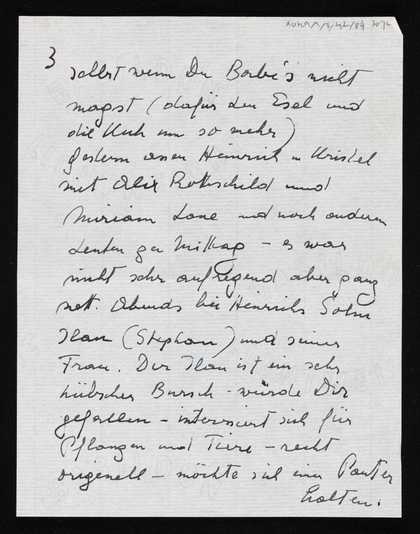 3
selbst wenn Du Barbi's nicht
magst (dafür den Esel und
die Kuh um so mehr)
gestern assen Heinrich u Kristel
mit Alix Rothschild und
Miriam Lane und noch anderen
Leuten zu Mittag – es war
nicht sehr aufregend aber ganz
nett. Abends bei Heinrichs Sohn
Ilan (Stephan) und seiner
Frau. Der Ilan ist ein sehr
hübscher Bursch – würde Dir
gefallen – interessiert sich für
Pflanzen und Tiere – recht
originell – möchte sich einen Panter
halten.